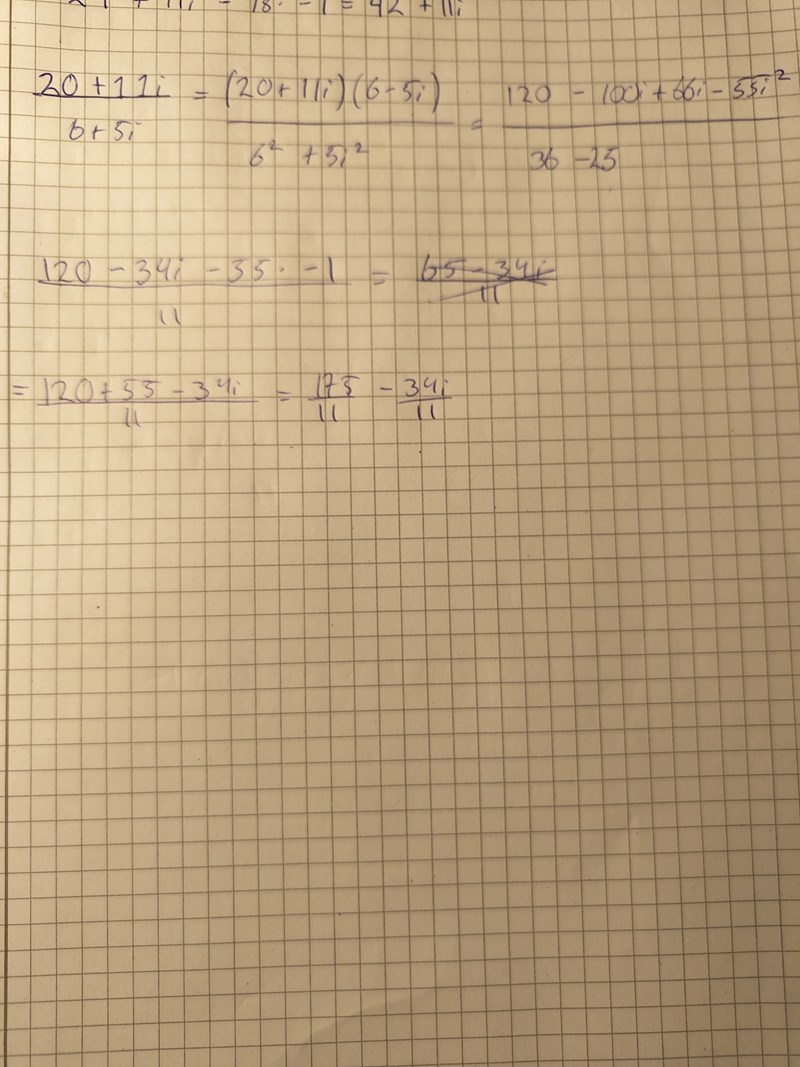 + 11i - 18 · -1 = 42 + 11i
20 + 11i / 6 + 5i = (20 + 11i)(6 - 5i) / 6² + 5i² = 120 - 100i + 66i - 55i² / 36 - 25
120 - 34i - 35 · -1 / 11 = 65 - 34i / 11
= 120 + 55 - 34i / 11 = 175 / 11 - 34i / 11